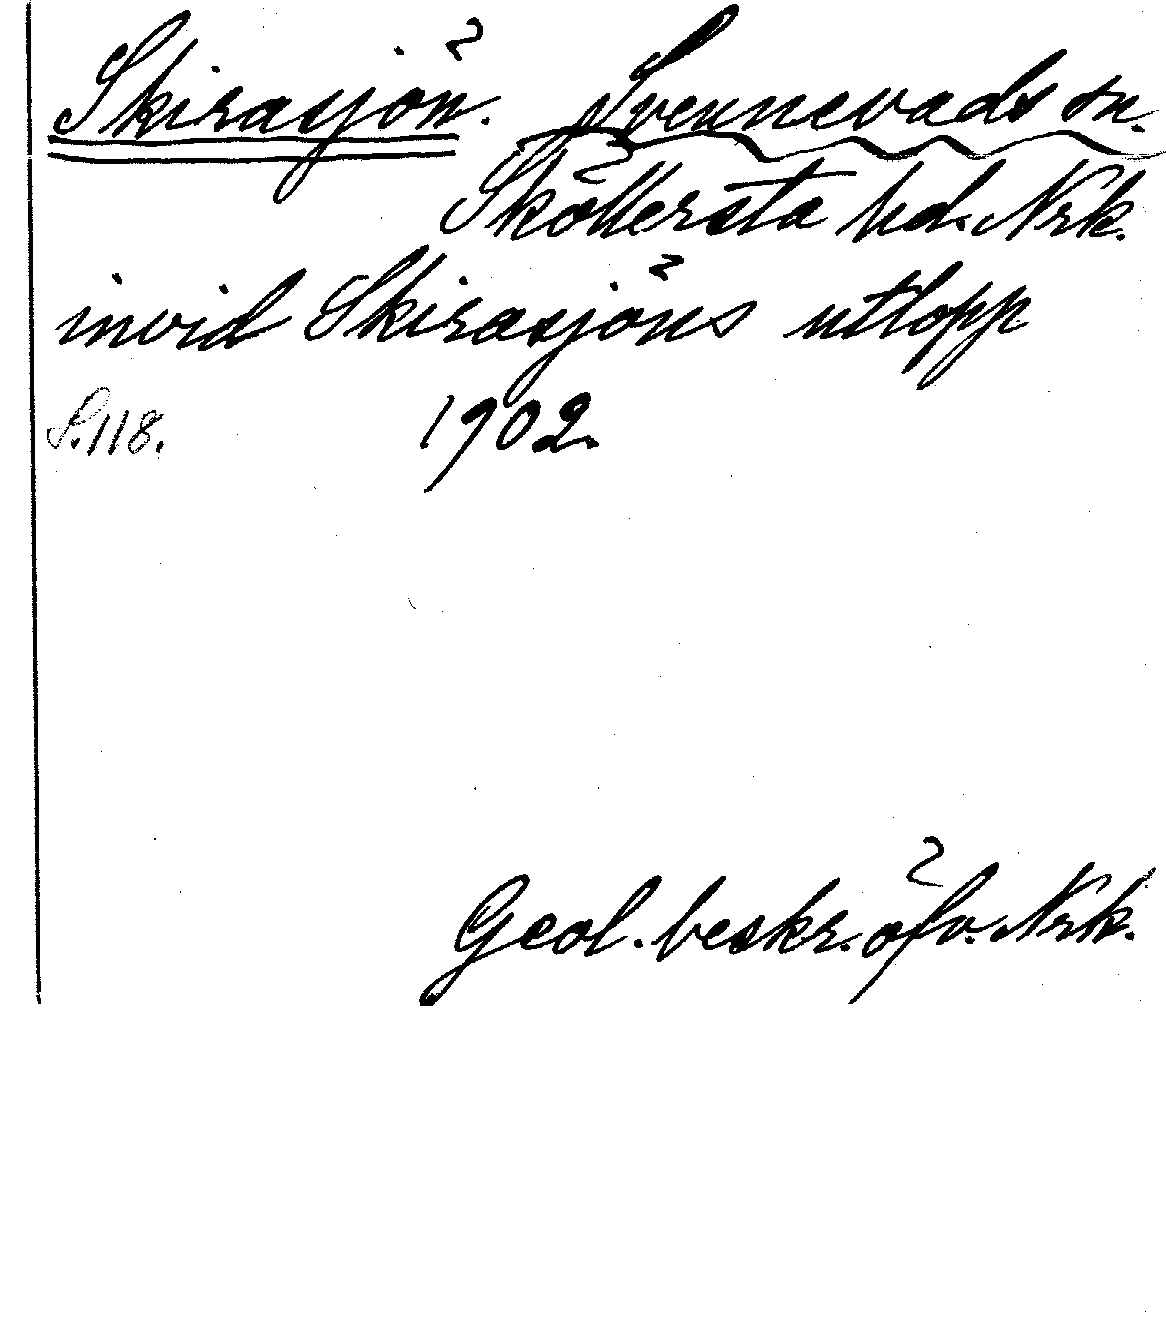 Skirasjön. Svennevads sn.
Sköllersta hd. Nrk.
invid Skirasjöns utlopp
S. 118. 1902.
Geol. beskr. öfv. Nrk.